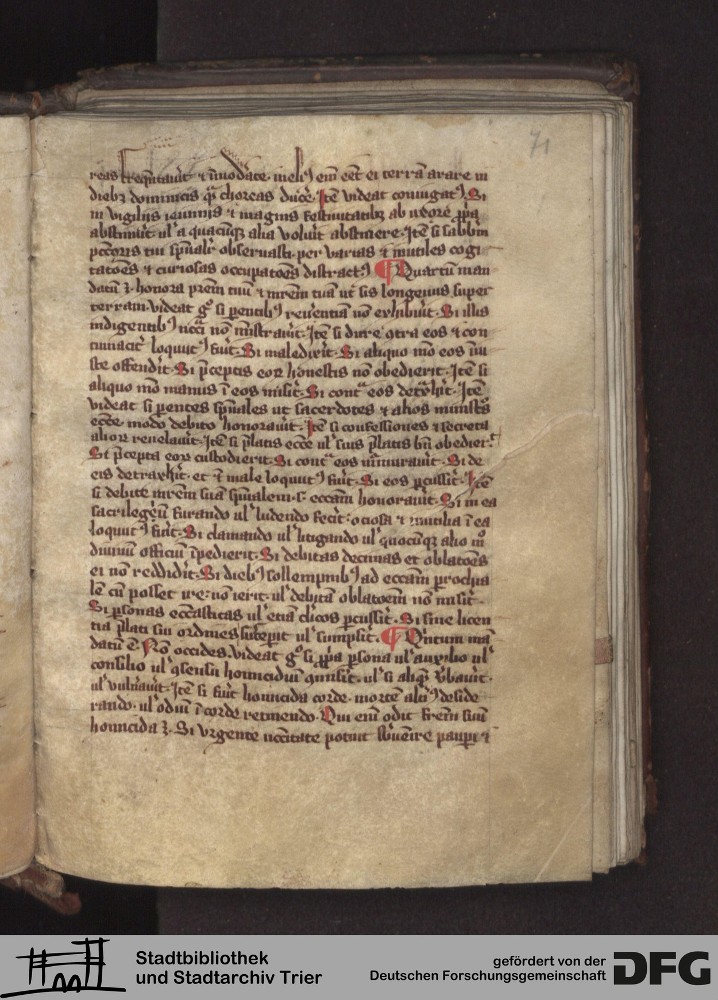 71
reas frequẽtauit ⁊ īmodate. meliꝰ em̃ eẽt ei terrã arare in
dieb̄ꝫ dominicis qͣ̃ choreas duc̃e. Itẽ videat coniugatꝰ. Si
in vigiliis ieiuniis ⁊ magnis festiuitatibꝫ ab uxore ꝓp̃a
abstinuit. ul̕ a quacūqꝫ alia voluit abstinere. Itẽ si sabbm̃
pectoris tui sp̃ualit̕ obseruasti. per varias ⁊ inutiles cogi
tatões ⁊ curiosas occupatões distractꝰ. ¶ Quartū man
datū ꝫ. honora prem̃ tuū ⁊ mrẽm tuā ut sis longeuus super
terram. videat gͦ si parentibꝰ reuẽntiã nõ exhibuit. Si illis
indigentibꝰ ncc̃ia nõ mĩstrauit. Itẽ si dure ꝯtra eos ⁊ con
tumacit̕ loquutꝰ fuit. Si maledixit. Si aliquo mõ eos iniu
ste offendit. Si p̃ceptis eoꝝ honestis nõ obedierit. Itẽ si
aliquo mõ manus ĩ eos misit. Si contͣ eos detͣxit. Itẽ
videat si parentes sp̃uales ut sacerdotes ⁊ alios ministͦs
ecc̃e modo debito honorauit. Itẽ si confessiones ⁊ secreta
alioꝝ reuelauit. Itẽ si p̃latis ecc̃e ul̕ suis p̃latis bñ obedierit
Si p̃cepta eoꝝ custodierit. Si contͣ eos murmurauit. Si de
eis detraxit. et ĩ male loquutꝰ fuit. Si eos ꝑcussit. Itẽ
si debite mrẽm suã sp̃ualem .s. ecc̃am honorauit. Si in ea
sacrilegiũ furando ul̕ ludendo fecit. ociosa ⁊ inutilia ĩ ea
loquutꝰ fuit. Si clamando ul̕ litigando ul̕ quocūqꝫ alio mͦ
diuinũ officiũ ĩpedierit. Si debitas decimas et oblatões
ei nõ reddidit. Si diebꝰ sollempnibꝰ ad ecc̃am prochia
lẽ cũ posset ire. nõ ierit. ul̕ debitã oblatoẽm nõ misit.
Si ꝑsonas ecc̃asticas ul̕ etiã cl̕icos ꝑcussit. Si sine licen
tia p̃lati sui ordines suscepit ul̕ sumpsit. ¶ Qͥntum mã
datũ ẽ. Nõ occides. videat gͦ si ꝓp̃a ꝑsona ul̕ auxilio ul̕
consilio ul̕ ꝯsensu homicidiũ ꝯmisit. ul̕ si aliqͣ vͦbauit.
ul̕ vulñauit. Itẽ si fuit homicida corde. mortẽ altiꝰ deside
rando. ul̕ odiũ ĩ corde retinendo. Qui eni odit frẽm suũ
homicida ꝫ. Si urgente nccͣitate potuit sbuẽnire paupi ⁊
Stadtbibliothek
und Stadtarchiv Trier
gefördert von der
Deutschen Forschungsgemeinschaft
DFG